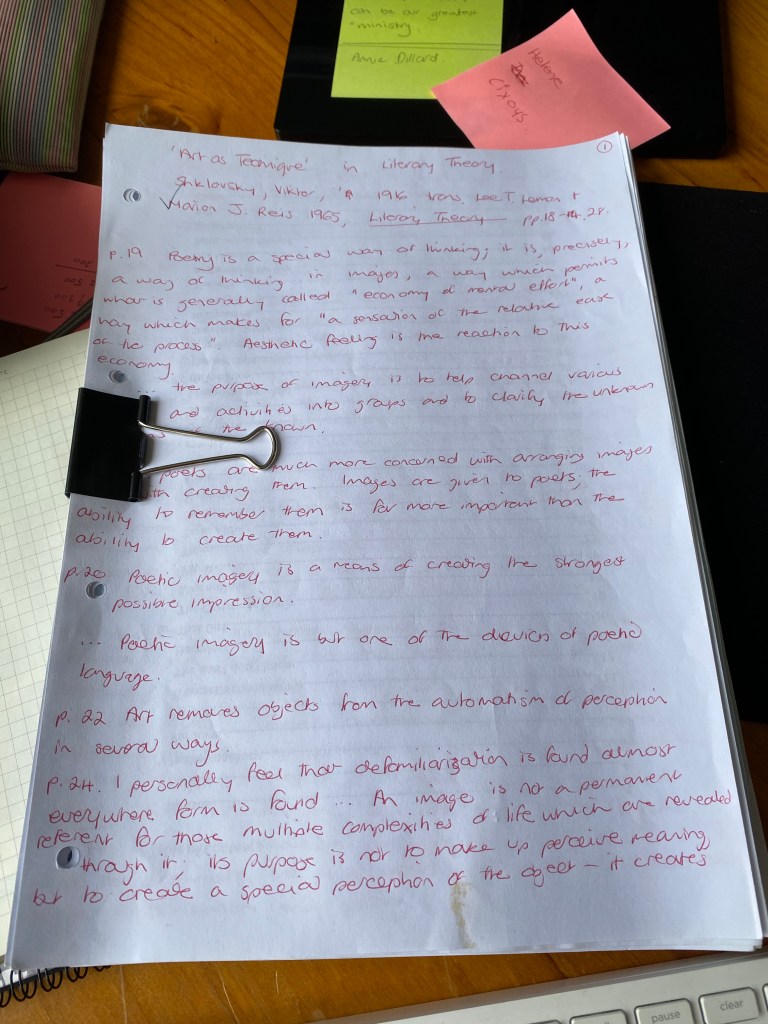 can be our greatest
"ministry.
Annie Dillard.
Helene
Cixous.
1
'Art as Technique' in Literary Theory.
Shklovsky, Viktor, 1916 trans. Lee T. Lemon +
Marion J. Reis 1965, Literary Theory pp.18-14,28.
p.19 Poetry is a special way of thinking; it is, precisely,
a way of thinking in images, a way which permits
what is generally called "economy of mental effort", a
way which makes for "a sensation of the relative ease
of the process". Aesthetic feeling is the reaction to this
economy.
... the purpose of imagery is to help channel various
and activities into groups and to clarify the unknown
the known.
poets are much more concerned with arranging images
with creating them. Images are given to poets; the
ability to remember them is far more important than the
ability to create them.
p.20 Poetic imagery is a means of creating the strongest
possible impression.
... Poetic imagery is but one of the devices of poetic
language.
p.22 Art removes objects from the automatism of perception
in several ways.
p.24. I personally feel that defamiliarization is found almost
everywhere form is found ... An image is not a permanent
referent for those multiple complexities of life which are revealed
through it; its purpose is not to make up perceive meaning
but to create a special perception of the object - it creates
pause
clear